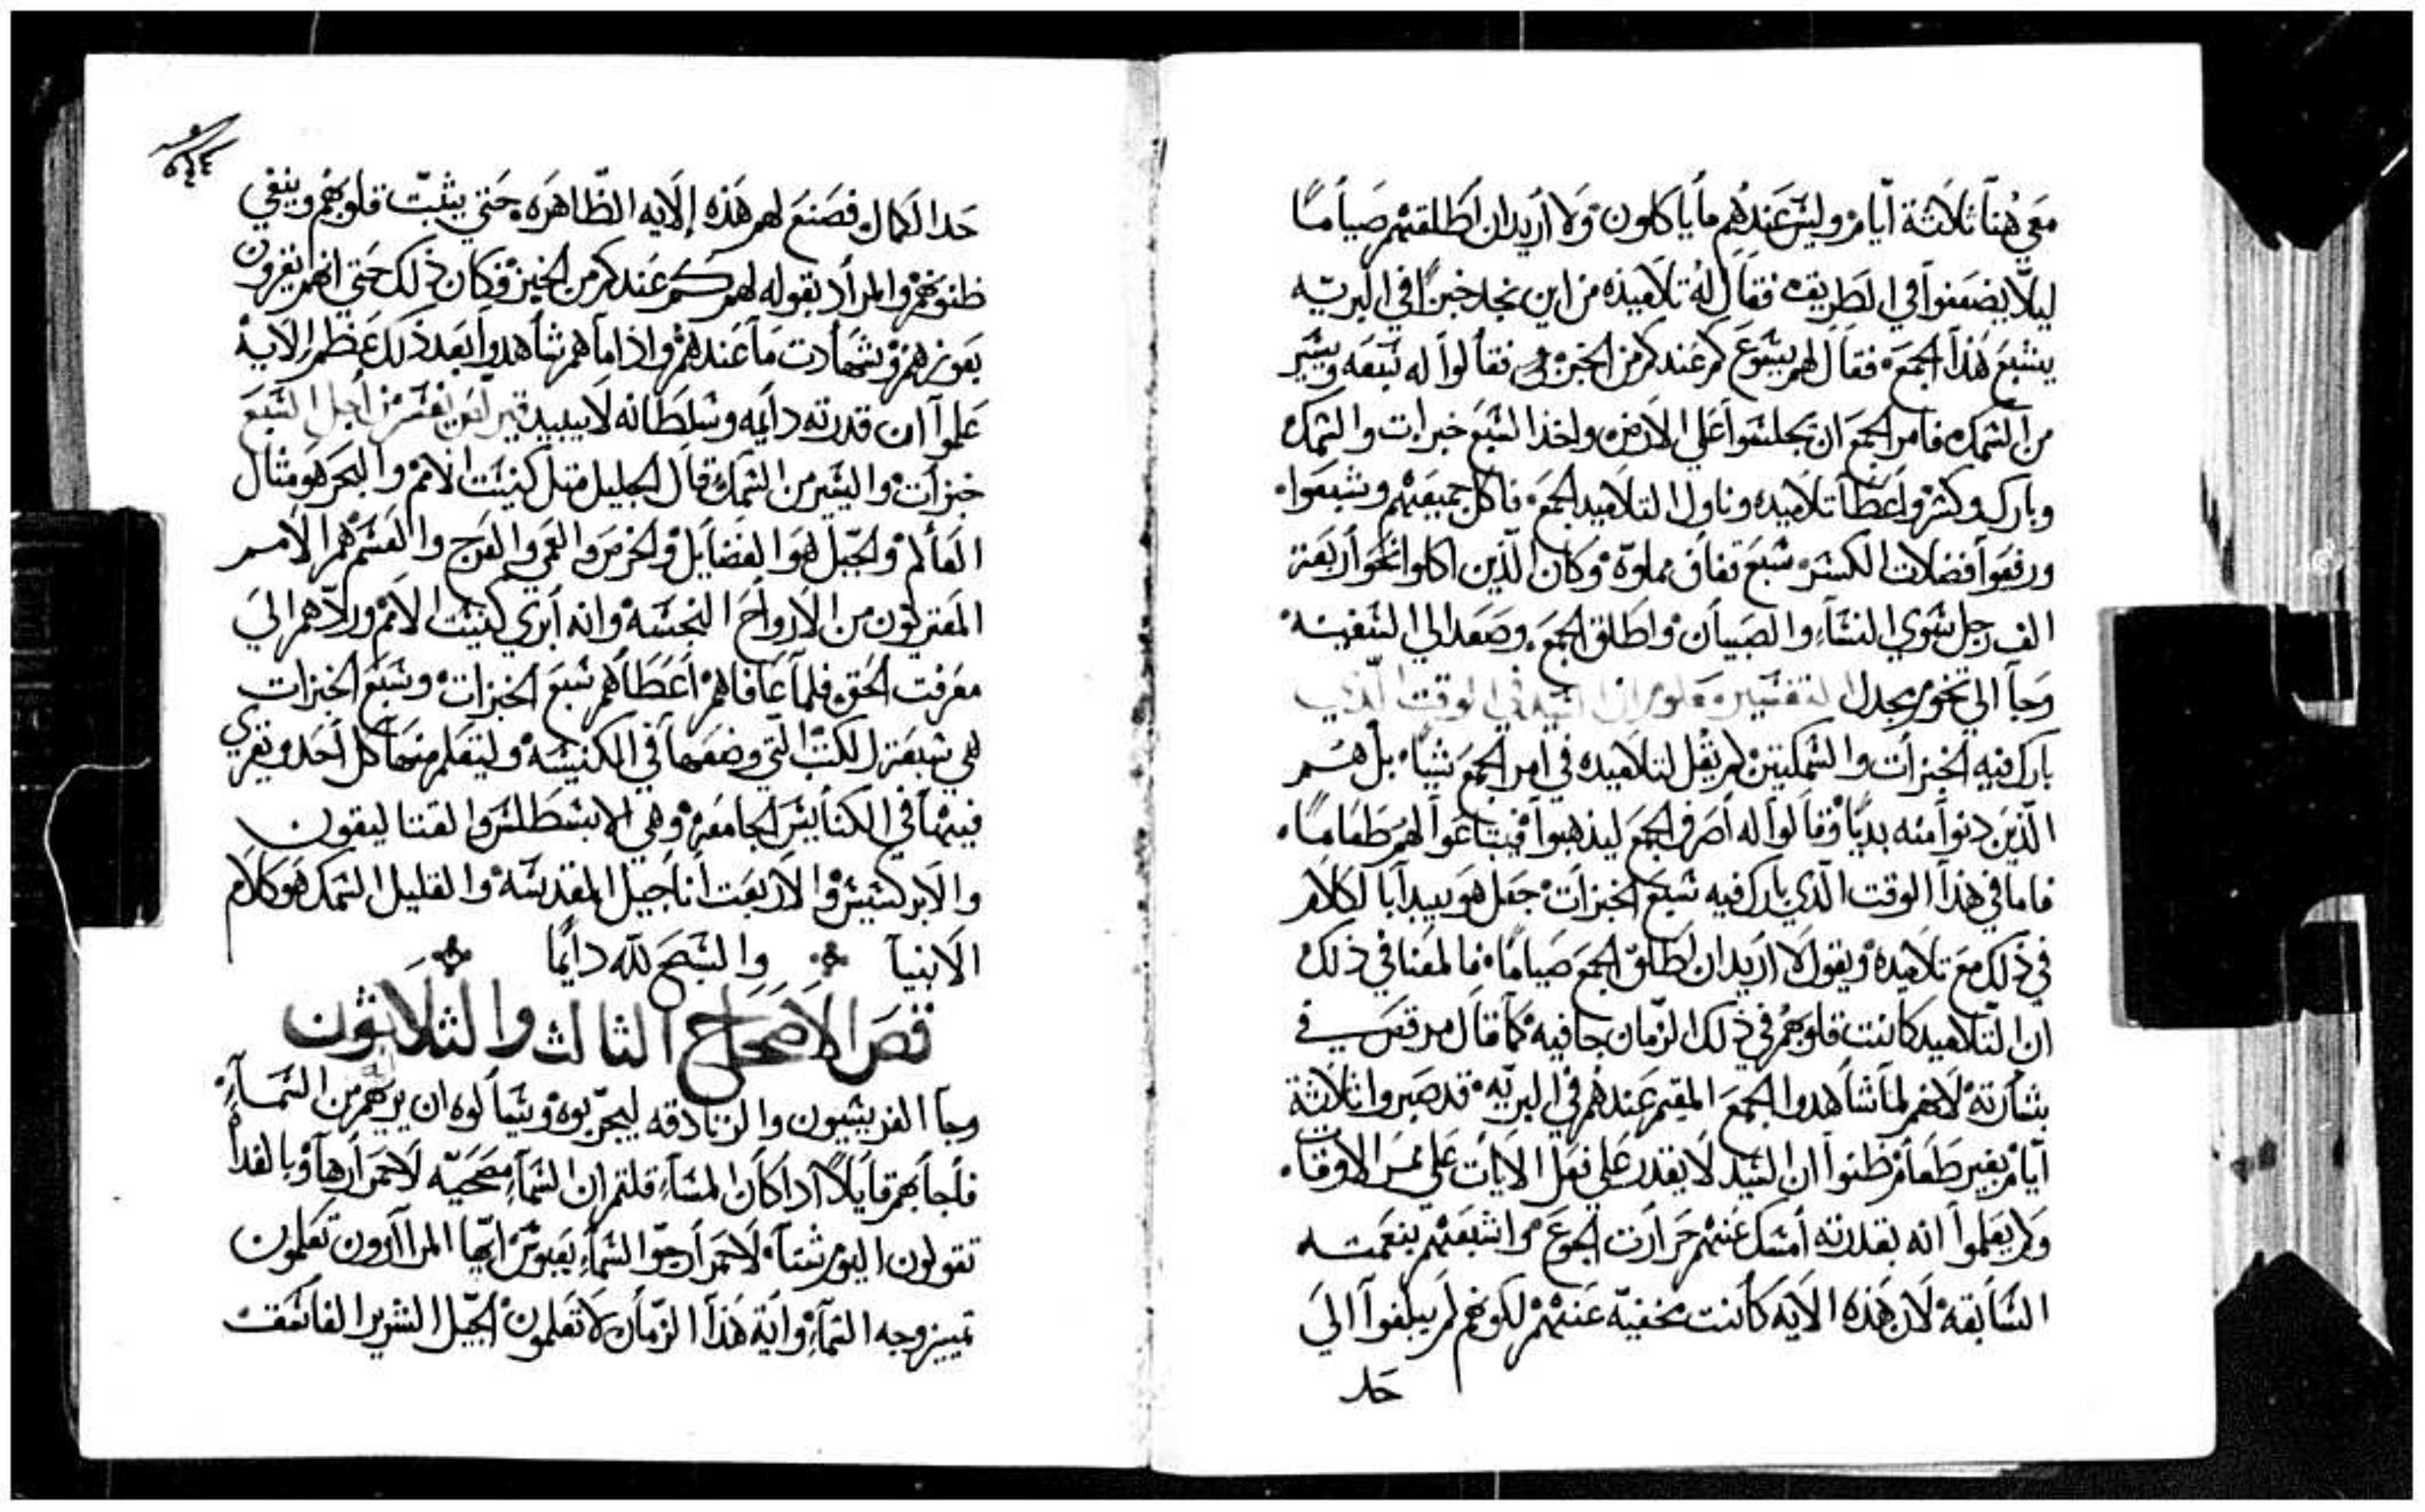 معي هنا ثلاثة أيام وليس عندهم ما ياكلون ولا اريد ان اطلقهم صياماً
ليلا يضعفوا في الطريق فقال له تلاميذه من اين نجد خبزاً في البريه
يشبع هذا الجمع فقال لهم يسوع كم عندكم من الخبز فقالوا له سبعه ويسير
من السمك فامر الجمع ان يجلسوا على الارض واخذ السبع خبزات والسمك
وبارك وكسر واعطا تلاميده وناول التلاميد الجمع فاكل جميعهم وشبعوا
ورفعوا فضلات الكسر سبع قفاف مملوة وكان الذين اكلوا نحو اربعة
الف رجل سوي النساء والصبيان واطلق الجمع وصعد الي السفينه
وجا الي تخوم مجدل التفسير معلوم ان السيد في الوقت الذي
بارك فيه الخبزات والسمكتين لم يقل لتلاميده في امر الجمع شيا بل هم
الذين دنوا منه بديا وقالوا له أصرف الجمع ليذهبوا فيبتاعوا لهم طعاماً
فاما في هذا الوقت الذي بارك فيه سبع الخبزات جعل هو يبدا بالكلام
في ذلك مع تلاميده ويقول لا اريد ان اطلق الجمع صياماً فالمعنا في ذلك
ان التلاميد كانت قلوبهم في ذلك الزمان جافيه كما قال مرقس في
بشارته لانهم لما شاهدوا الجمع المقيم عندهم في البريه قد صبروا ثلاثة
ايام بغير طعام ظنوا ان السيد لا يقدر على فعل الايات على ممر الاوقات
ولم يعلموا انه بقدرته أمسك عنهم حرارت الجوع واشبعهم بنعمته
السابقه لان هذه الايه كانت مخفيه عنهم لكونهم لم يبلغوا الي
حد
حد الكمال فصنع لهم هذه الايه الظاهره حتي يثبت قلوبهم وينفي
ظنونهم والمراد بقوله لهم كم عندكم من الخبز فكان ذلك حتي انهم يقرون
بعوزهم وشهادت ما عندهم واذا ما هم شاهدوا بعد ذلك عظم الاية
علموا ان قدرته دايمه وسلطانه لا يبيد من أجل السبع
خبزات واليسير من السمك قال الجليل مثل كنيست الامم والبحر هو مثال
العالم والجبل هو الفضايل والخرس والعمي والعرج والعسم هم الامم
المقترنون من الارواح النجسه وانه أبري كنيست الامم وردهم الي
معرفت الحق فلما عافاهم اعطاهم سبع الخبزات وسبع الخبزات
هي سبعة الكتب التي وضعها في الكنيسه وليتعلم منها كل أحد ويقري
فيها في الكنايس الجامعه وهي الابسطلس والقتاليقون
والابركسيس والاربعت أناجيل المقدسه والقليل السمك هو كلام
الانبيا والسبح لله دايما
قص الاصحاح الثالث والثلاثون
وجا الفريسيون والزنادقه ليجربوه ويسالوه ان يريهم من السماء
فاجابهم قايلاً ادا كان المساء قلتم ان السماء مصحيه لاحمرارها وبالغداة
تقولون اليوم شتا لاحمرار جو السماء بعبوس ايها المراآرون تعلمون
تمييز وجه السماء واية هذا الزمان لا تعلمون الجيل الشرير الفاسق